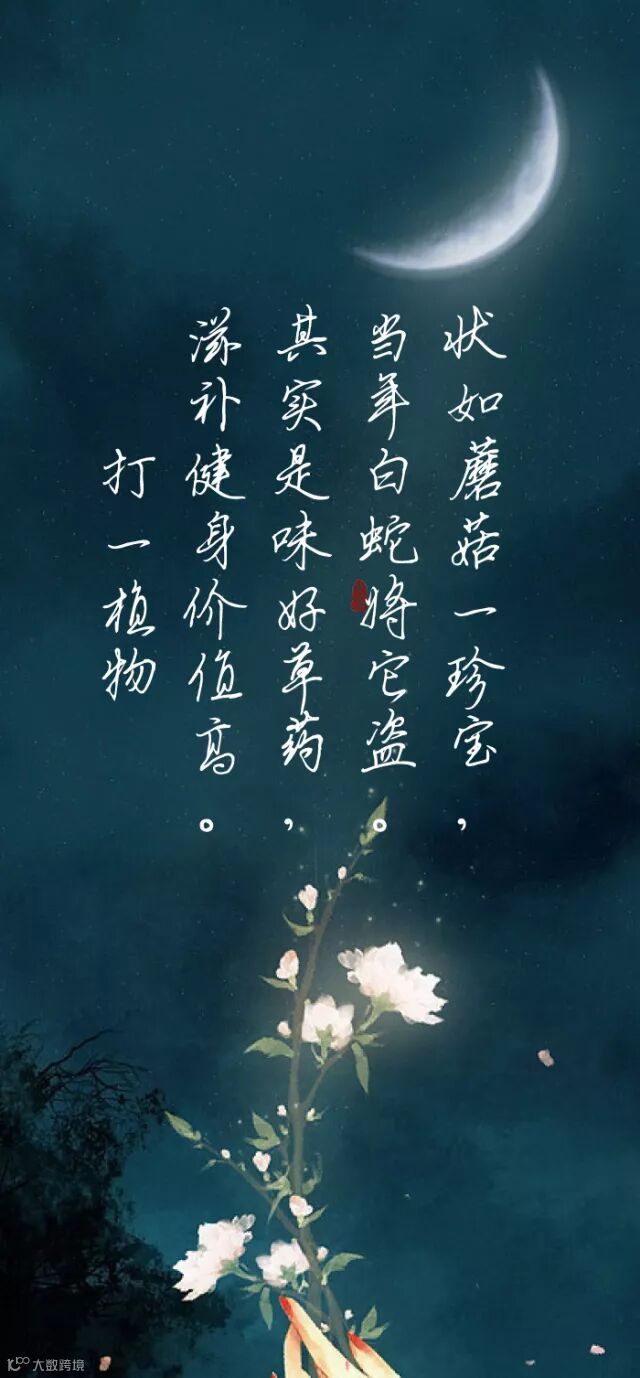 状如蘑菇一珍宝，
当年白蛇将它盗。
其实是味好草药，
滋补健身价值高。
打一植物
大数跨境